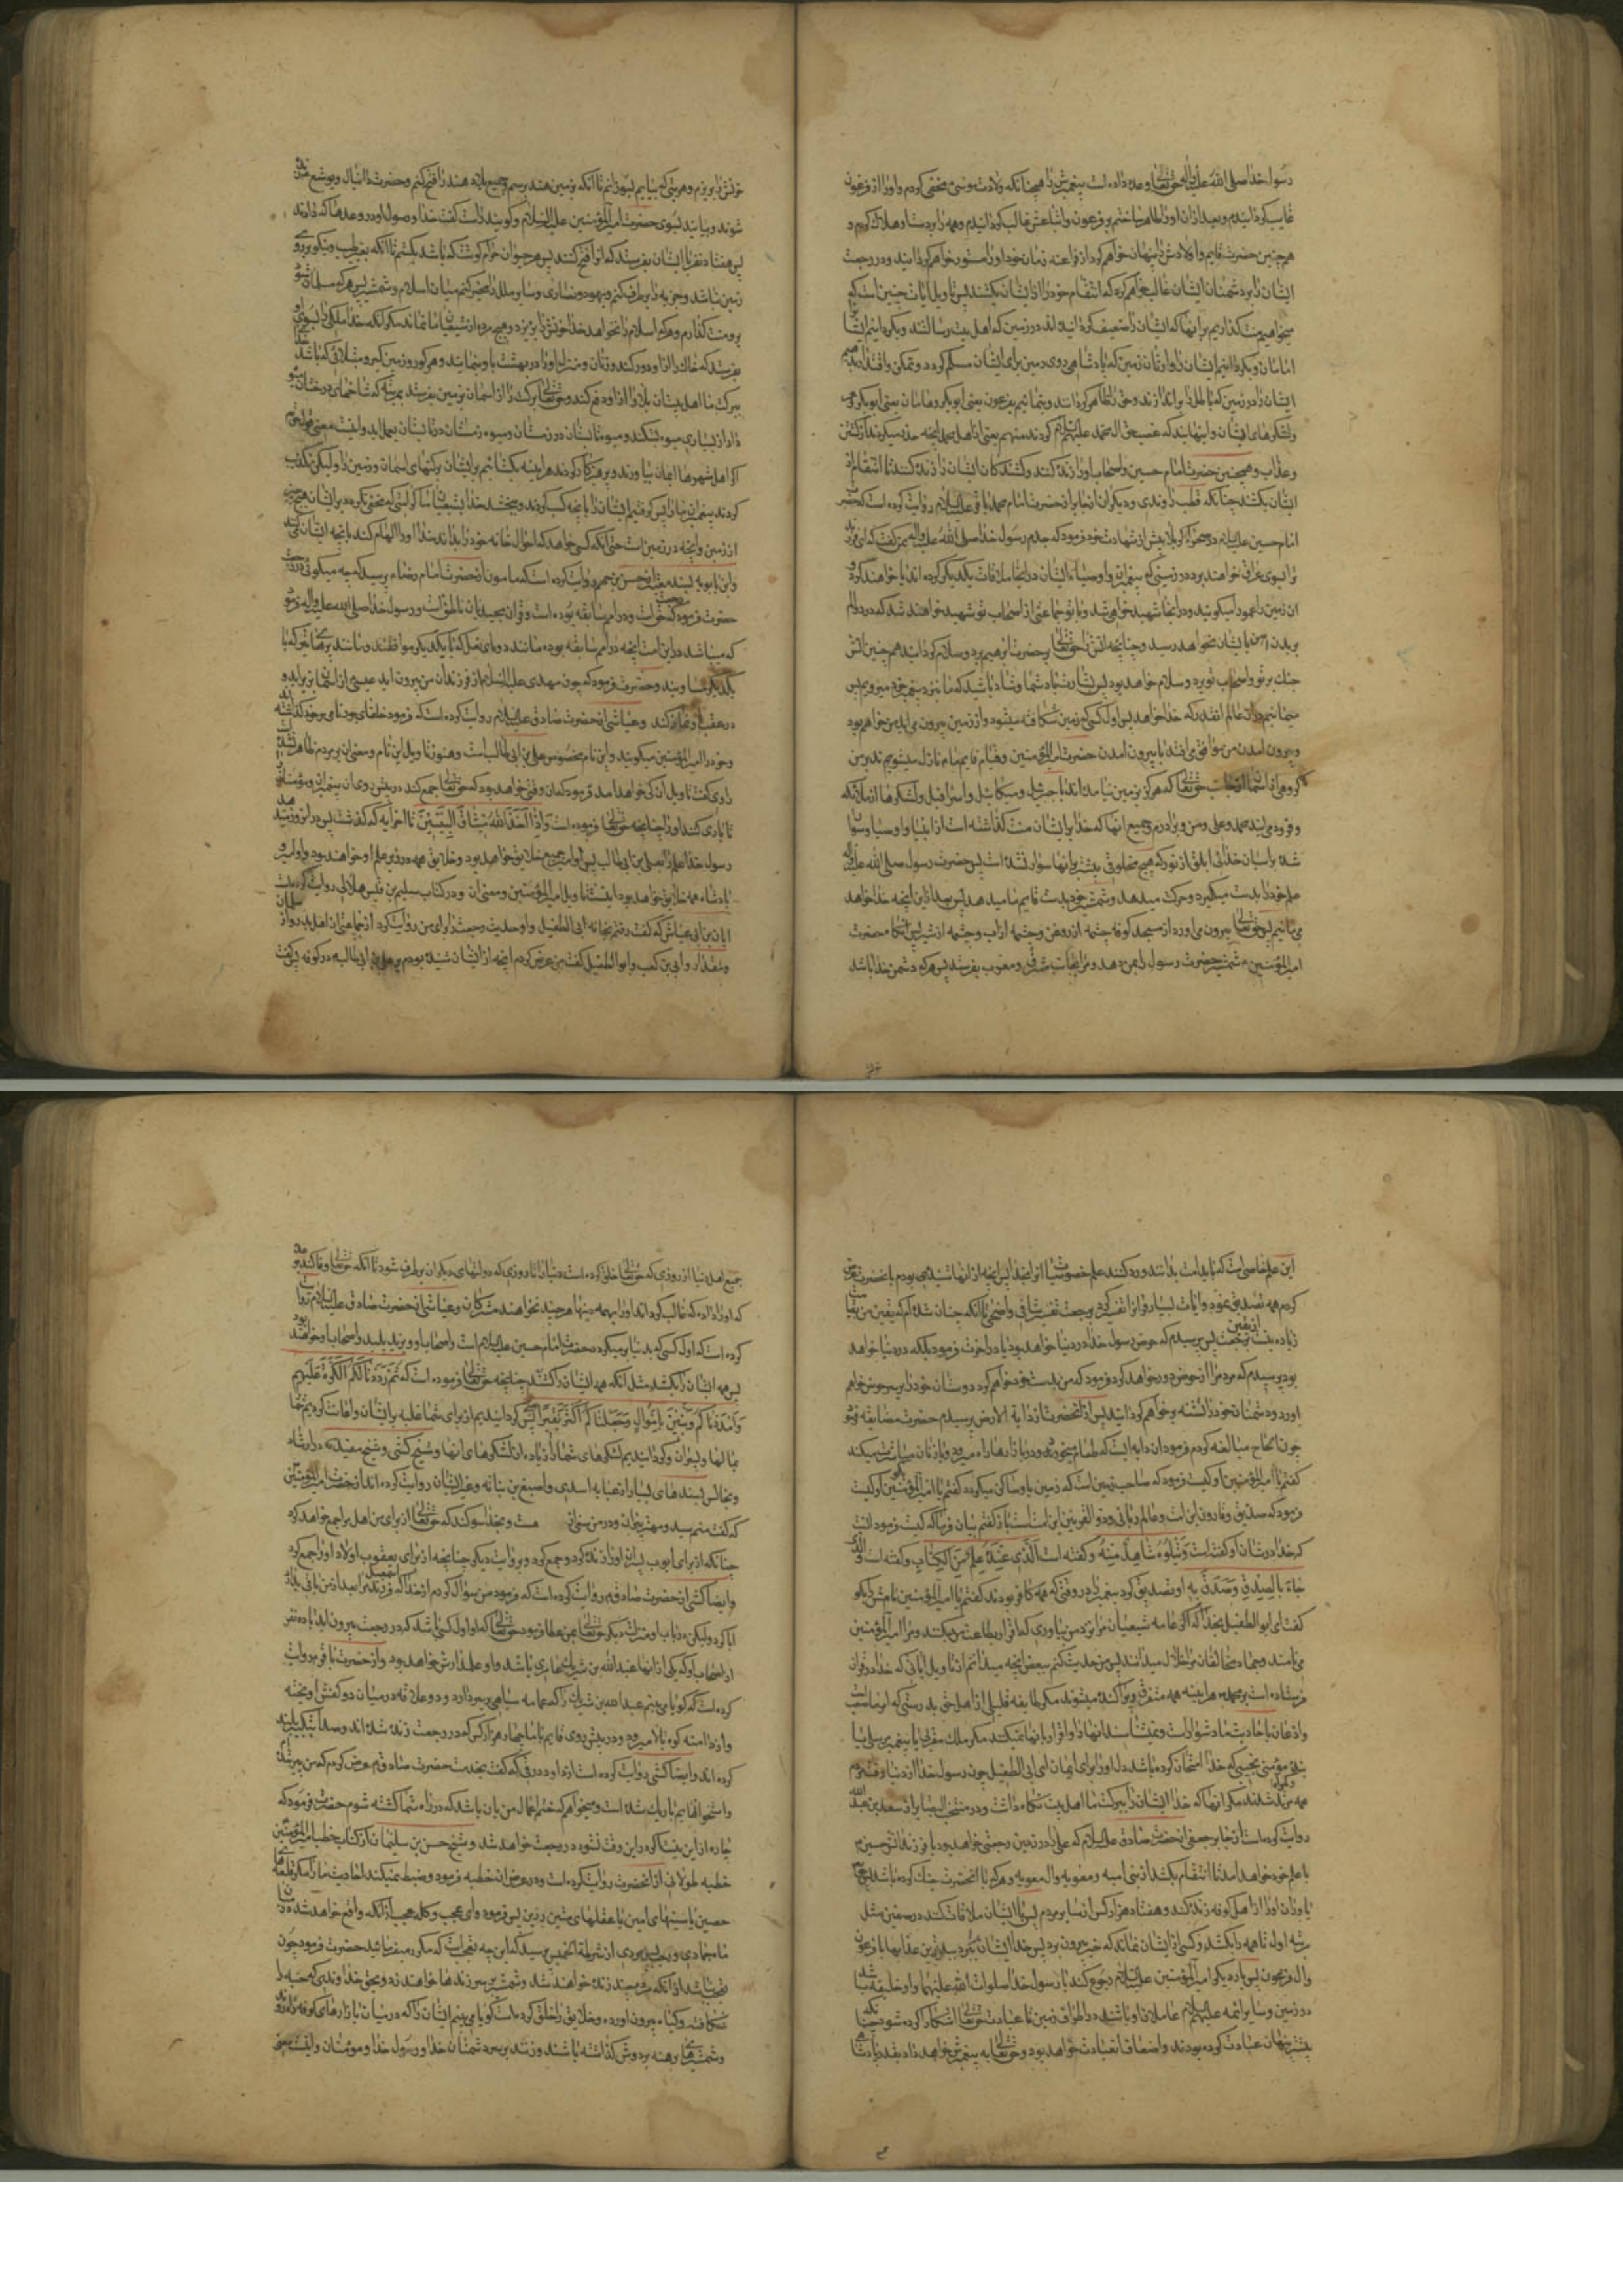 رسول خدا صلی الله علیه وآله حق تعالی وعده داده است پیغمبرش را همچنانکه ولادت موسی مخفی کردم و او را از فرعون
غایب گردانیدم و بعد از آن او را ظاهر ساختم بر فرعون و اتباعش غالب گردانیدم و همه را بر دست او هلاک کردم و
همچنین حضرت قایم و اولادش را پنهان خواهم کرد از فراعنه زمان خود و او را مستور خواهم گردانید و در رجعت
ایشان را بر دشمنان ایشان غالب خواهم کرد که انتقام خود را از ایشان بکشند پس تاویل آیات چنین است که
میخواهیم منت گذاریم بر آنها که ایشان را ضعیف گردانیده اند در زمین که اهل بیت رسالتند و بگردانیم ایشان
امامان و بگردانیم ایشان را وارثان زمین که پادشاهی روی زمین برای ایشان مسلم گردد و تمکن و اقتدار دهیم
ایشان را در زمین که باطل را براندازند و حق را ظاهر گردانند و بنمائیم بفرعون یعنی ابوبکر و هامان یعنی ابوبکر
و لشکرهای ایشان و اینهایند که غصب حق آل محمد علیهم السلام کردند منهم یعنی از اهل محمد آنچه حذر میکردند از کشتن
و عذاب و همچنین حضرت امام حسین و اصحاب او را زنده کنند و کشندگان ایشان را زنده کنند تا انتقام از
ایشان بکشند چنانکه قطب راوندی و دیگران از جابر از حضرت امام محمد باقر علیه السلام روایت کرده است که حضرت
امام حسین علیه السلام در صحرای کربلا پیش از شهادت خود فرمود که جدم رسول خدا صلی الله علیه وآله بمن گفت که ای فرزند
ترا بسوی عراق خواهند برد در زمینی که پیغمبران و اوصیاء ایشان در آنجا ملاقات یکدیگر کرده اند یا خواهند کرد و
آن زمین را عمورا میگویند و در آنجا شهید خواهی شد و با تو جماعتی از اصحاب تو شهید خواهند شد که درد و الم
بریدن آهن بایشان نخواهد رسید و چنانچه آتش را حق تعالی بر حضرت ابرهیم برد و سلام گردانید همچنین آتش
جنگ بر تو و اصحاب تو برد و سلام خواهد بود پس بشارت باد شما و شاد باشید که ما بنزد پیغمبر خود میرویم پس
میمانیم در آن عالم آنقدر که خدا خواهد پس اول کسی که زمین شکافته میشود و از زمین بیرون میآید من خواهم بود
و بیرون آمدن من موافق می افتد با بیرون آمدن حضرت امیرالمؤمنین و قیام قایم ما پس نازل میشویم ند بر من
گروهی از آسمان از جانب حق تعالی که هرگز بزمین نیامده اند با جبرئیل و میکائیل و اسرافیل و لشکرها از ملائکه
و فرود می آیند محمد و علی و من و برادرم و جمیع آنها که خدا بر ایشان منت گذاشته است از انبیا و اوصیا و سوار
شده بر اسبان خدائی ابلق از نور که هیچ مخلوقی پیشتر بر آنها سوار نشده است پس حضرت رسول صلی الله علیه وآله
علم خود را بدست میگیرد و حرکت میدهد و شمشیر خود بدست قایم ما میدهد پس بعد از این آنچه خدا خواهد
می مانیم پس حق تعالی بیرون می آورد از مسجد کوفه چشمه از روغن و چشمه از آب و چشمه از شیر پس آنگاه حضرت
امیرالمؤمنین شمشیر حضرت رسول را بمن دهد و مرا بجانب مشرق و مغرب بفرستد پس هر که دشمن خدا باشد
خونش را بریزم و هر بتی که بیابم بسوزانم تا آنکه بزمین هند برسم و جمیع بلاد هند را فتح کنم و حضرت دانیال و یوشع زنده
شوند و بیایند بسوی حضرت امیرالمؤمنین علیه السلام و گویند راست گفت خدا و رسول او در وعدهائی که دادند
پس هفتاد نفر با ایشان بفرستد که آنرا فتح کنند پس هر حیوان حرام گوشت که باشد بکشم تا آنکه بغیر طیب و نیکو بر روی
زمین نباشد و جزیه را بر طرف کنم و یهود و نصاری و سایر ملل را مخیر کنم میان اسلام و شمشیر پس هر که مسلمان شود
بر او منت گذارم و هر که اسلام را نخواهد خدا خونش را بریزد و هیچ مرد از شیعیان ما نماند مگر آنکه خدا ملکی را بسوی او
بفرستد که خاک را از او دور کند و زنان و منزل او را در بهشت باو بنماید و هر کور و زمین گیر و مبتلائی که باشد خدا
ببرکت ما اهل بیت آن بلا را از او دفع کند و حق تعالی برکت را از آسمان بزمین بفرستد بمرتبه که شاخهای درختان میوه
دار از بسیاری میوه بشکند و میوه تابستان در زمستان و میوه زمستان در تابستان بعمل آید و اینست معنی قول حق
که اگر اهل شهرها ایمان بیاورند و پرهیزکار گردند هرآینه بگشائیم بر ایشان برکتهای آسمان و زمین را و لیکن تکذیب
کردند پیغمبران ما را پس گرفتیم ایشان را بآنچه کسب کردند و می بخشد خدا بشیعیان ما کرامتی که مخفی نگردد بر ایشان هیچ چیز
از زمین و آنچه در زمین است حتی آنکه کسی خواهد که احوال خانه خود را بداند خدا او را الهام کند بآنچه ایشان کنند
و ابن بابویه بسند معتبر از حسن بن جهم روایت کرده است که مامون از حضرت امام رضاء پرسید که چه میگوئی در رجعت
حضرت فرمود که حق است و در امم سابقه بوده است و قرآن مجید بآن ناطق است و رسول خدا صلی الله علیه وآله فرمود
که میباشد در این امت آنچه در امم سابقه بوده مانند دو تای نعل که با یکدیگر موافقند و مانند پرهای تیر که با
یکدیگر مساویند و حضرت فرمود که چون مهدی علیه السلام از فرزندان من بیرون آید عیسی از آسمان بزیر آید و
در عقب او نماز کند و عیاشی از حضرت صادق علیه السلام روایت کرده است که فرمود خلفای جور نامی بر خود گذاشته
و خود را امیرالمؤمنین میگویند و این نام مخصوص علی بن ابی طالب است و هنوز تاویل این نام و معنی آن بر مردم ظاهر نشده
راوی گفت تاویل آن کی خواهد آمد فرمود که آن وقتی خواهد بود که حق تعالی جمع کند در پیش روی آن پیغمبران و مؤمنان
تا یاری کنند او را چنانچه حق تعالی فرموده است وَاِذْ اَخَذَ اللهُ مِیثَاقَ النَّبِیّینَ تا آخر آیه که گذشت پس در آنروز میدهد
رسول خدا علم را بعلی بن ابی طالب پس او امیر جمیع خلایق خواهد بود و خلایق همه در زیر علم او خواهند بود و او امیر و
پادشاه همه خلایق خواهد بود اینست تاویل امیرالمؤمنین و معنی آن و در کتاب سلیم بن قیس هلالی روایت کرده است
ابان بن ابی عیاش که گفت رفتم بخانه ابی الطفیل و او حدیث رجعت را برای من روایت کرد از جماعتی از اهل بدر و از سلمان
و مقداد و ابی بن کعب و ابوالطفیل گفت من عرض کردم آنچه از ایشان شنیده بودم بر علی بن ابی طالب در کوفه پس گفت
این علم خاصی است که باید امت بدانند و رد کنند علم خصوصیت آنرا بخدا پس آنچه از آنها شنیده بودم بآنحضرت عرض
کردم همه تصدیق نمود و آیات بسیار از قرآن تفسیر کرد در رجعت تفسیر شافی و واضحی تا آنکه چنان شدم که یقین من بقیامت
زیاده نیست از یقین من برجعت پس پرسیدم که حوض رسول خدا در دنیا خواهد بود یا در آخرت فرمود بلکه در دنیا خواهد
بود پرسیدم که مردم را از حوض که دور خواهد کرد فرمود که من بدست خود خواهم کرد دوستان خود را بر سر حوض خواهم
آورد و دشمنان خود را تشنه برخواهم گردانید پس از آنحضرت از دابة الارض پرسیدم حضرت مضایقه فرمود
چون الحاح مبالغه کردم فرمود آن دابه ایست که طعام میخورد و در بازارها راه میرود و با زنان مباشرت میکند
گفتم یا امیرالمؤمنین او کیست فرمود که صاحب زمین است که زمین باو ساکن میگردد گفتم یا امیرالمؤمنین بگو او کیست
فرمود که صدیق و فاروق این امت و عالم ربانی و ذو القرنین این امت است باز گفتم بیان فرما که کیست فرمود آنست
که خدا در شان او گفته است وَیَتْلُوهُ شَاهِدٌ مِنْهُ و گفته است اَلَّذی عِنْدَهُ عِلْمٌ مِنَ الْکِتَابِ و گفته است وَالَّذی
جَاءَ بِالصِّدْقِ وَصَدَّقَ بِهِ او تصدیق کرد پیغمبر را در وقتی که همه کافر بودند گفتم یا امیرالمؤمنین نامش را بگو
گفت ای ابوالطفیل بخدا که اگر عامه شیعیان مرا نزد من بیاوری که اقرار بطاعت من میکنند و مرا امیرالمؤمنین
می نامند و جهاد مخالفان مرا حلال میدانند پس من حدیث کنم ببعض آنچه میدانم از تاویل آیاتی که خدا در قرآن
فرستاده است بر محمد هرآینه همه متفرق و پراکنده میشوند مگر طایفه قلیلی از اهل حق بدرستی که امر ما صعب است
و اذعان باحادیث ما دشوار است و نمی شناسد آنها را و اقرار بآنها نمیکند مگر ملک مقربی یا پیغمبر مرسلی یا
بنده مؤمنی نجیبی که خدا امتحان کرده باشد دل او را برای ایمان ای ابی الطفیل چون رسول خدا از دنیا رفت مردم
همه مرتد شدند مگر آنها که خدا ایشان را ببرکت ما اهل بیت نگاه داشت و در منتخب البصایر از سعد بن عبدالله
روایت کرده است از جابر جعفی از حضرت صادق علیه السلام که علی را در زمین رجعتی خواهد بود با فرزندانش حسین
با علم خود خواهد آمد تا انتقام بکشد از بنی امیه و معویه و آل معویه و هر که با آنحضرت جنگ کرده باشد پس حق
یاوران او را از اهل کوفه زنده کند و هفتاد هزار کس از سایر مردم پس با ایشان ملاقات کند در صفین مثل
مرتبه اول تا همه را بکشد و کسی از ایشان نماند که خبر بیرون برد پس خدا ایشان ببرد بسوی بدترین عذابها با فرعون
و آل فرعون پس بار دیگر امیرالمؤمنین علیه السلام رجوع کند با رسول خدا صلوات الله علیهما و او خلیفه باشد
در زمین و سایر ائمه علیهم السلام عاملان او باشند در اطراف زمین تا عبادت حق تعالی آشکار کرده شود چنانکه
پیشتر پنهان عبادت کرده بودند و اضعاف آن عبادت خواهد بود و حق تعالی به پیغمبرش خواهد داد بقدر پادشاهی
جمیع اهل دنیا از روزی که حق تعالی خلق کرده است دنیا را تا روزی که دولتهای دیگران بر طرف شود تا آنکه حق تعالی وفا کند بوعده
که او را داده که غالب گرداند او را بر همه دینها هرچند نخواهند مشرکان و عیاشی از حضرت صادق علیه السلام روایت
کرده است که اول کسی که بدنیا بر میگردد حضرت امام حسین علیه السلام است و اصحاب او و یزید پلید و اصحاب او خواهند بود
پس همه ایشان را بکشد مثل آنکه همه ایشان را کشتند چنانچه حق تعالی فرموده است که ثُمَّ رَدَدْنَا لَکُمُ الْکَرَّةَ عَلَیْهِمْ
وَاَمْدَدْنَاکُمْ بِاَمْوَالٍ وَبَنِینَ وَجَعَلْنَاکُمْ اَکْثَرَ نَفِیراً پس گردانیدیم از برای شما غلبه بر ایشان و اعانت کردیم شما
بمالها و پسران و گردانیدیم لشکرهای شما را زیاده از لشکرهای آنها و شیخ کشی و شیخ مفید در ارشاد
و مجالس بسندهای بسیار از عبایه اسدی و اصبغ بن نباته و غیر ایشان روایت کرده اند از حضرت امیرالمؤمنین
که گفت منم سید و مهتر پیران و در من سنتی از هست و بخدا سوگند که حق تعالی از برای من اهل مرا جمع خواهد کرد
چنانکه از برای ایوب پسران او را زنده کرد و جمع کرد و بروایت دیگر چنانچه از برای یعقوب اولاد او را جمع کرد
و ایضا کشی از حضرت صادق روایت کرده است که فرمود من سؤال کردم از خدا که فرزندم اسمعیل را بعد از من باقی بدارد
ابا کرد و لیکن در باب او منزلت دیگر حق تعالی بمن عطا فرمود حق تعالی که او اول کسی باشد که در رجعت بیرون آید با ده نفر
از اصحاب او که یکی از آنها عبدالله بن شریک عامری باشد و او علمدارش خواهد بود و از حضرت باقر روایت
کرده است که گویا می بینم عبدالله بن شریک را که عمامه سیاهی بر سر دارد و دو علاقه در میان دو کتفش آویخته
و از دامنه کوه بالا میرود در پیش روی قایم ما با چهار هزار کس که در رجعت زنده شده اند و صدا بتکبیر بلند
کرده اند و ایضا کشی روایت کرده است از داود رقی که گفت بخدمت حضرت صادق عرض کردم که من پیر شده ام
و استخوانهایم باریک شده است و میخواهم که ختم اعمال من بآن باشد که در راه شما کشته شوم حضرت فرمود که
چاره از این نیست اگر در این وقت نشود در رجعت خواهد شد و شیخ حسن بن سلیمان از کتاب خطب امیرالمؤمنین
خطبه طولانی از آنحضرت روایت کرده است و در عرض آن خطبه فرمود و ضبط نمیکند احادیث ما را مگر قلعهای
حصین یا سینهای امین یا عقلهای متین رزین پس فرمود وای عجب و کل عجب از آنکه واقع خواهد شد در میان
ماه جمادی و رجب پس مردی از شرطة الخمیس پرسید که این چه تعجب است که مکرر میفرمائید حضرت فرمود چون
تعجب نباشد از آنکه مرده چند زنده خواهند شد و شمشیر بر سر زندها خواهند زد و بحق خداوندی که حبه را
شکافته و گیاه بیرون آورده و خلایق را خلق کرده است گویا می بینم ایشان را که در میان بازارهای کوفه راه روند
و شمشیرهای برهنه بر دوش گذاشته باشند و زنند بر سر دشمنان خدا و رسول خدا و مومنان و اینست معنی